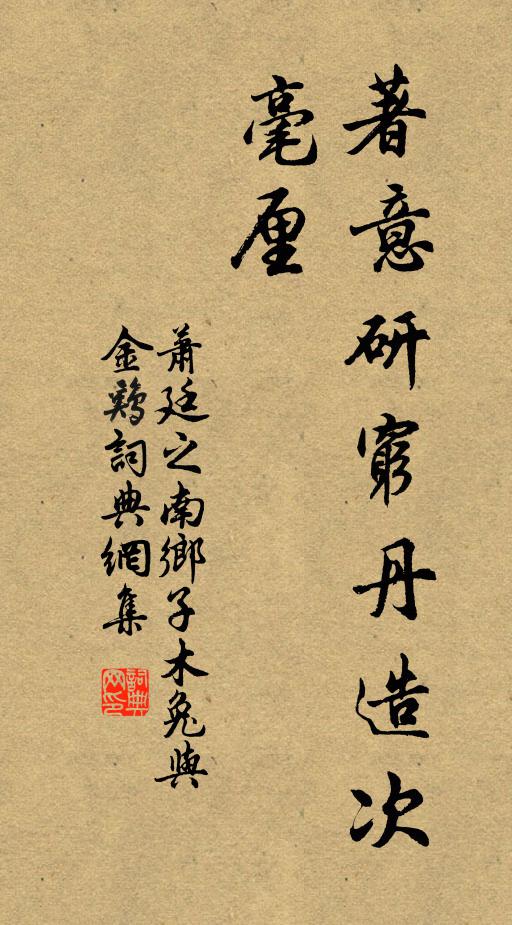 著意研窮丹造次
毫厘
蕭廷之南鄉子木兔與
金鷄詞典網集
詞典网印